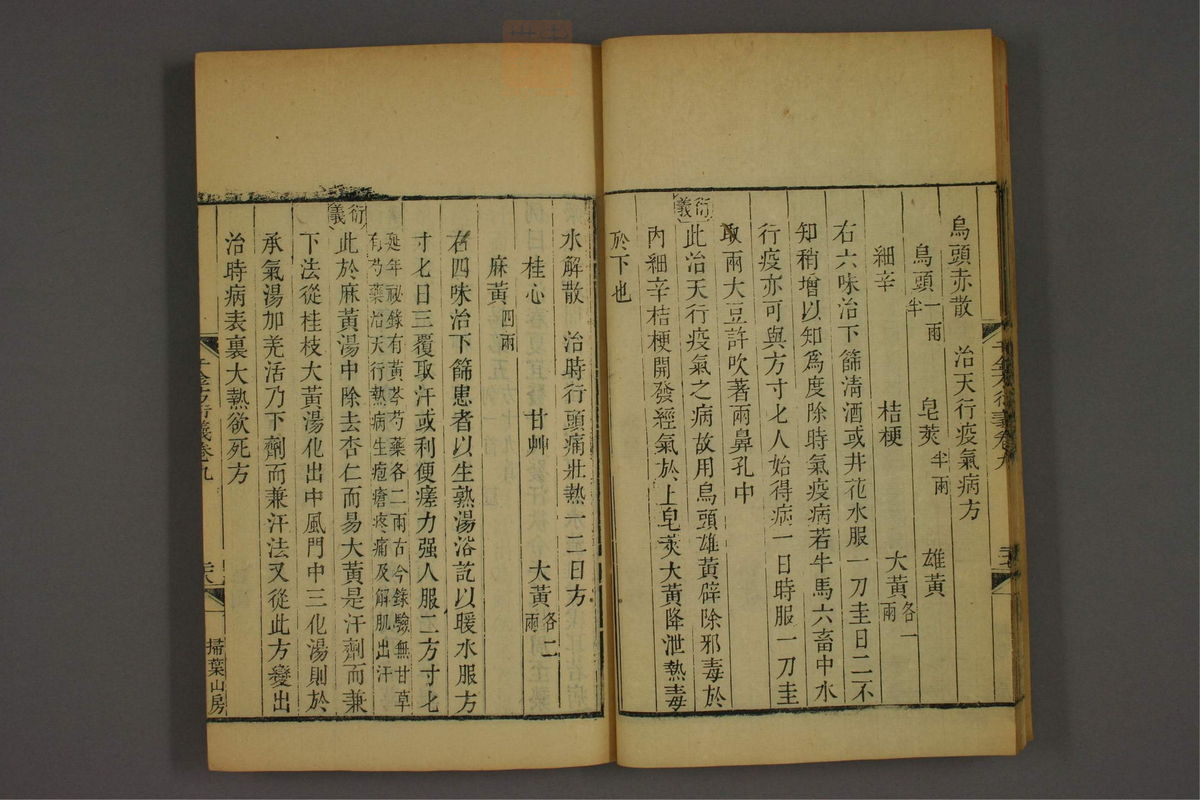 烏頭赤散 治天行疫氣病方
烏頭一兩半 皂莢半兩 雄黃
細辛 桔梗 大黃各一兩
右六味治下篩清酒或井花水服一刀圭日二不
知稍增以知爲度除時氣疫病若牛馬六畜中水
行疫亦可與方寸匕人始得病一日時服一刀圭
取兩大豆許吹著兩鼻孔中
衍義
此治天行疫氣之病故用烏頭雄黃辟除邪毒於
內細辛桔梗開發經氣於上皂莢大黃降泄熱毒
於下也
水解散 治時行頭痛壯熱一二日方
桂心 甘艸 大黃各二兩
麻黃四兩
右四味治下篩患者以生熟湯浴訖以暖水服方
寸匕日三覆取汗或利便瘥力强人服二方寸匕
延年祕錄有黃芩芍藥各二兩古今錄驗無甘草
有芍藥治天行熱病生疱瘡疼痛及解肌出汗
衍義
此於麻黃湯中除去杏仁而易大黃是汗劑而兼
下法從桂枝大黃湯化出中風門中三化湯則於
承氣湯加羌活乃下劑而兼汗法又從此方變出
治時病表裏大熱欲死方
千金方衍義卷九
掃葉山房